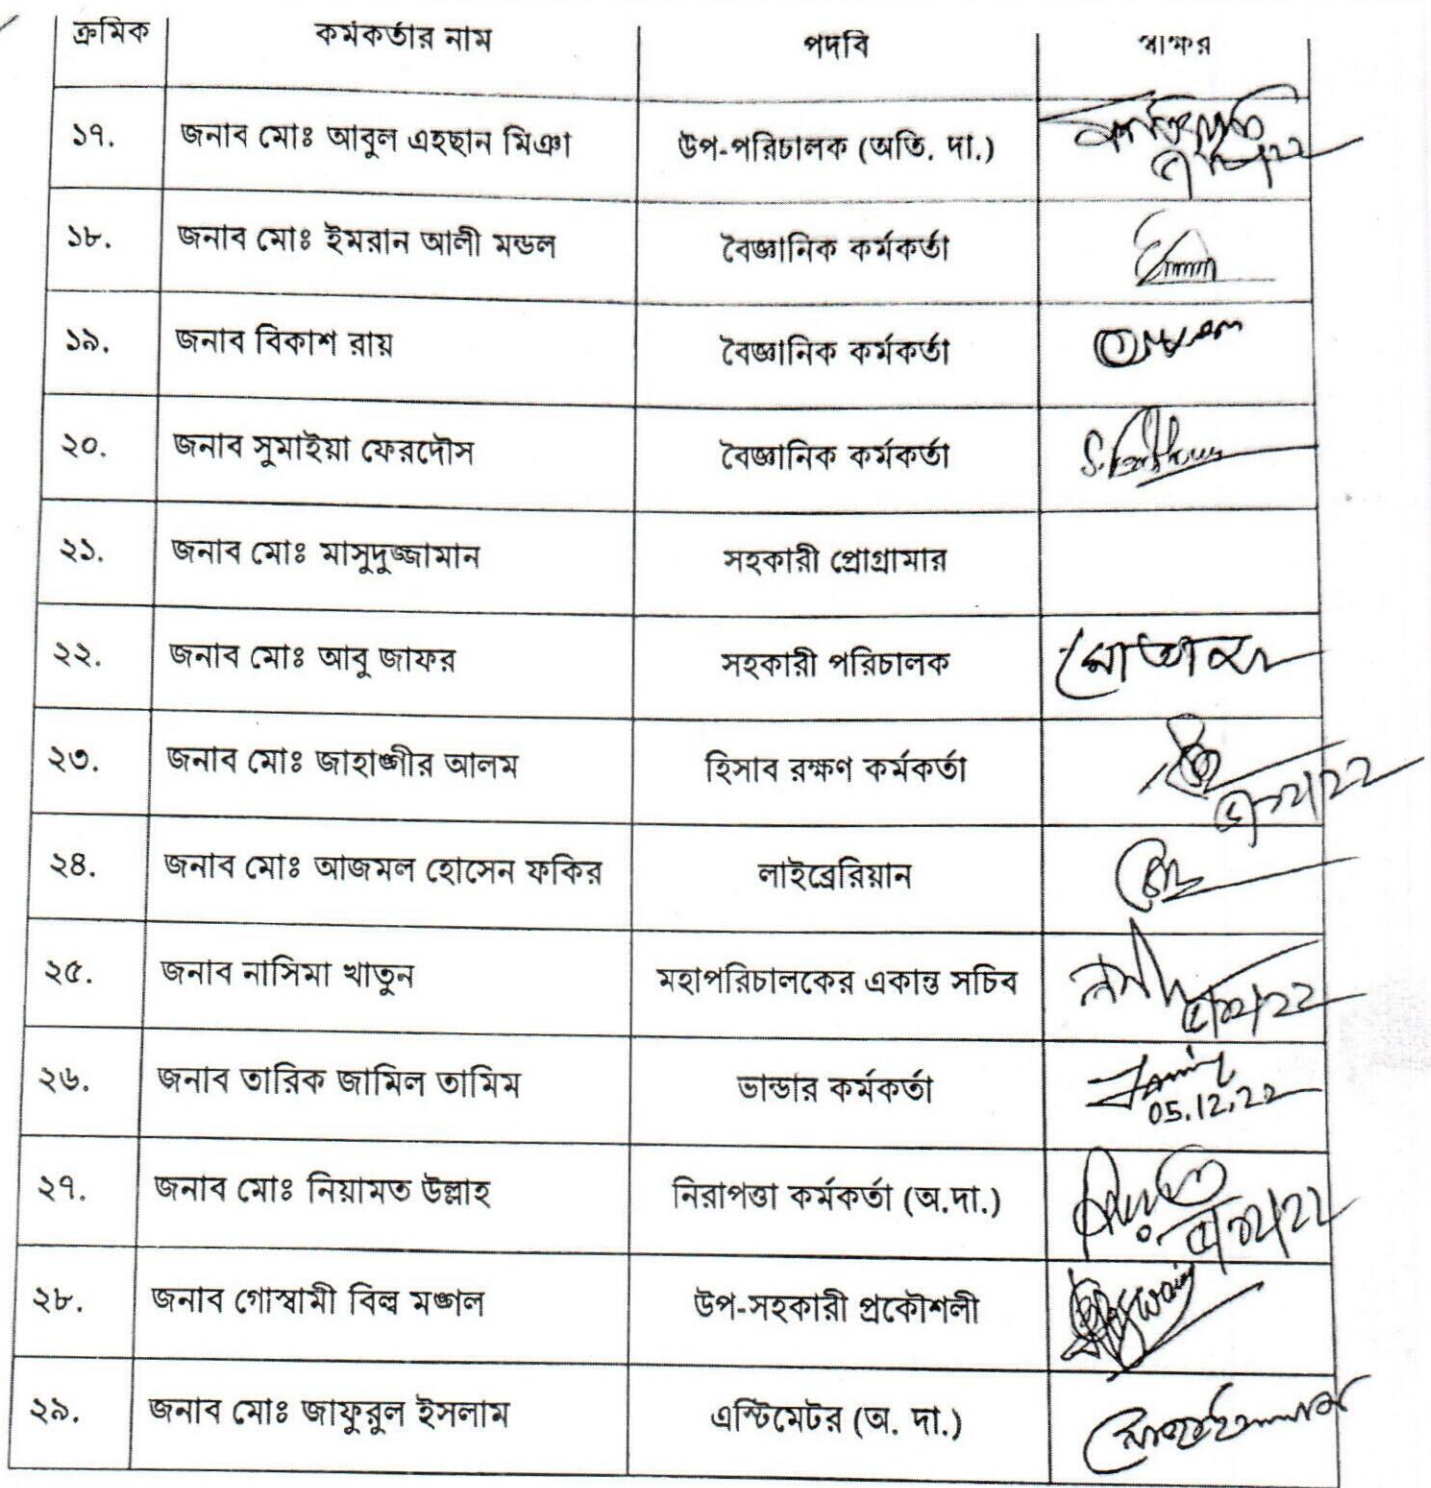 ক্রমিক কর্মকর্তার নাম পদবি স্বাক্ষর
১৭. জনাব মোঃ আবুল এহছান মিঞা উপ-পরিচালক (অতি. দা.)
১৮. জনাব মোঃ ইমরান আলী মন্ডল বৈজ্ঞানিক কর্মকর্তা
১৯. জনাব বিকাশ রায় বৈজ্ঞানিক কর্মকর্তা
২০. জনাব সুমাইয়া ফেরদৌস বৈজ্ঞানিক কর্মকর্তা
২১. জনাব মোঃ মাসুদুজ্জামান সহকারী প্রোগ্রামার
২২. জনাব মোঃ আবু জাফর সহকারী পরিচালক
২৩. জনাব মোঃ জাহাঙ্গীর আলম হিসাব রক্ষণ কর্মকর্তা
২৪. জনাব মোঃ আজমল হোসেন ফকির লাইব্রেরিয়ান
২৫. জনাব নাসিমা খাতুন মহাপরিচালকের একান্ত সচিব
২৬. জনাব তারিক জামিল তামিম ভান্ডার কর্মকর্তা
05.12.22
২৭. জনাব মোঃ নিয়ামত উল্লাহ নিরাপত্তা কর্মকর্তা (অ.দা.)
২৮. জনাব গোস্বামী বিল্ব মঙ্গল উপ-সহকারী প্রকৌশলী
২৯. জনাব মোঃ জাফুরুল ইসলাম এস্টিমেটর (অ. দা.)